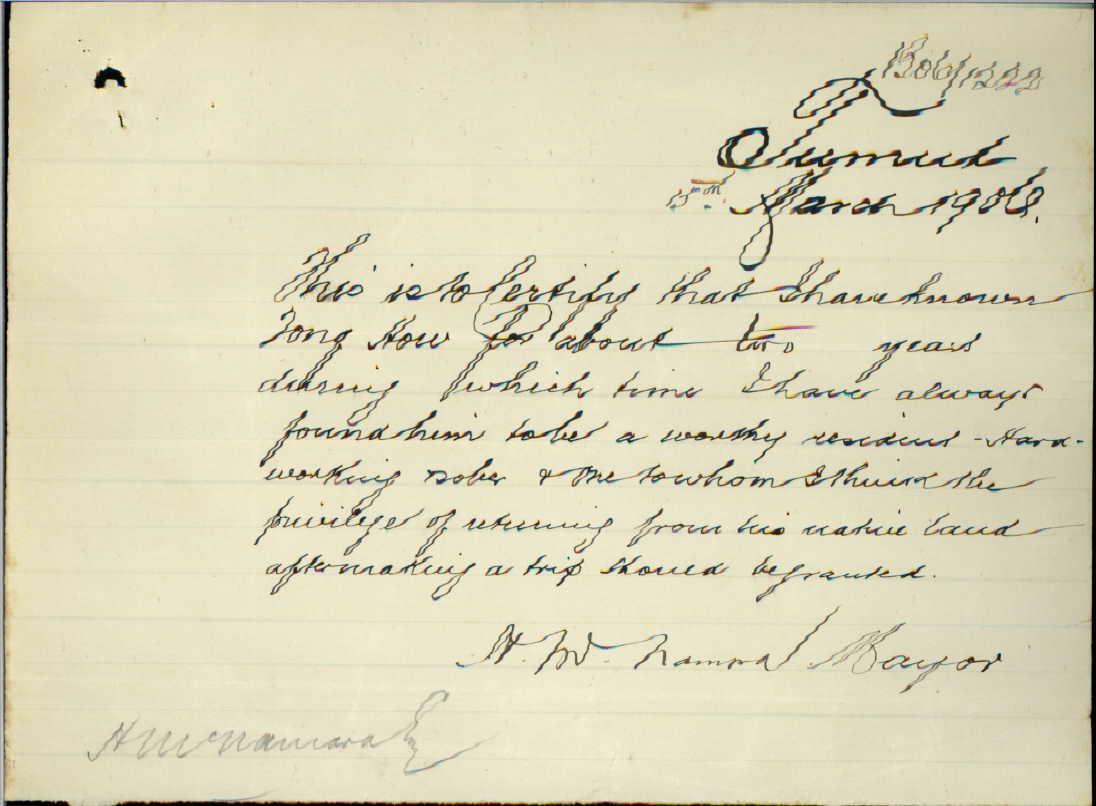 Tumut
March 1906.
This is to Certify that I have known
Tong How for about two years
during which time I have always
found him to be a worthy resident - Hard-
working sober & one to whom I think the
privilege of returning from his native land
after making a trip should be granted.
H. Mc. Namara Mayor
H McNamara Esq